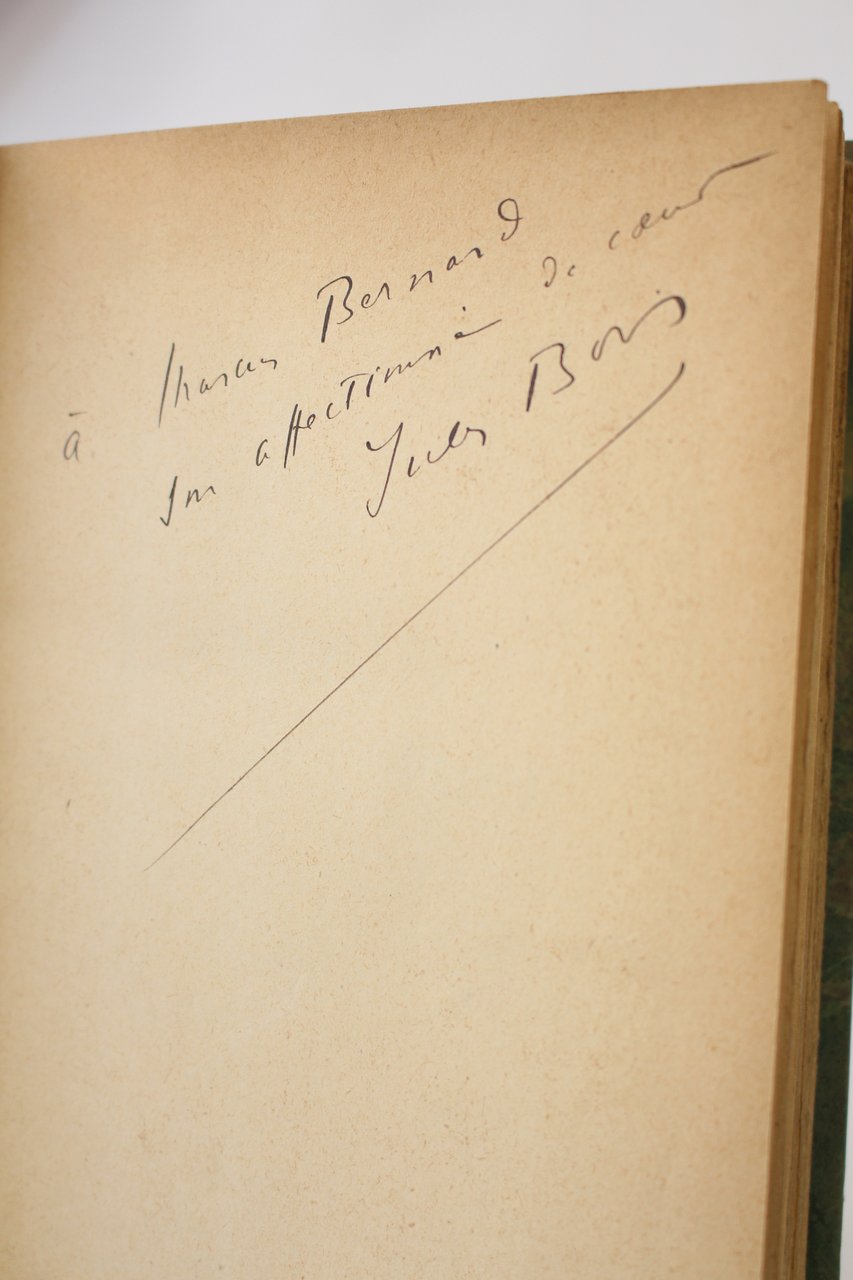 à Bernard
son affectionné de cœur
Jules Bois